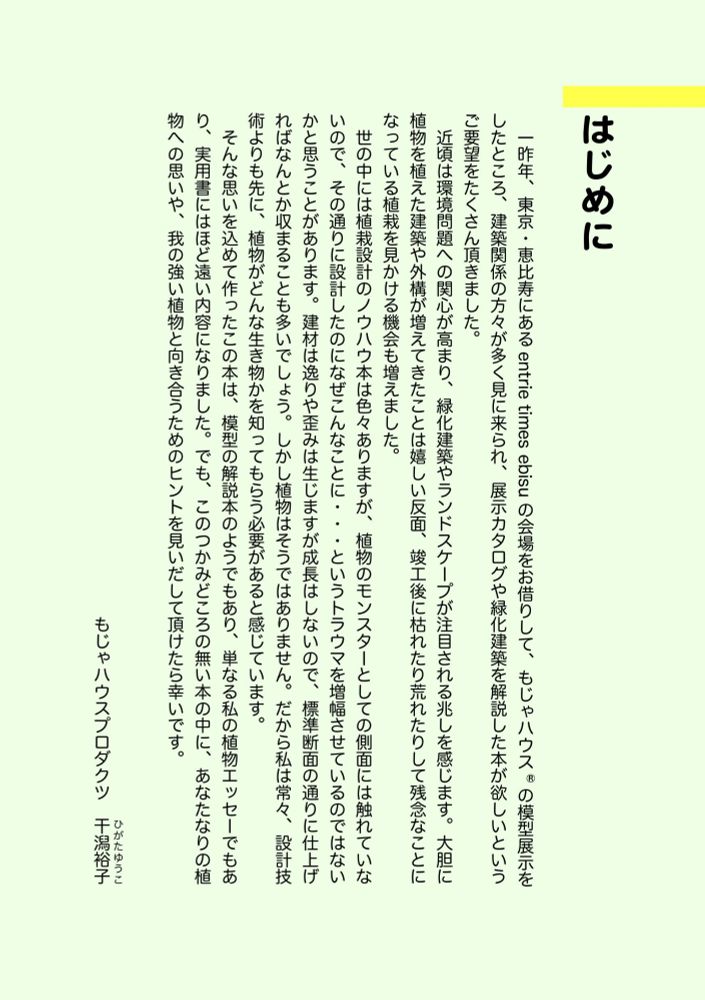 はじめに
一昨年、東京・恵比寿にある entrie times ebisu の会場をお借りして、もじゃハウス®の模型展示を
したところ、建築関係の方々が多く見に来られ、展示カタログや緑化建築を解説した本が欲しいという
ご要望をたくさん頂きました。
近頃は環境問題への関心が高まり、緑化建築やランドスケープが注目される兆しを感じます。大胆に
植物を植えた建築や外構が増えてきたことは嬉しい反面、竣工後に枯れたり荒れたりして残念なことに
なっている植栽を見かける機会も増えました。
世の中には植栽設計のノウハウ本は色々ありますが、植物のモンスターとしての側面には触れていな
いので、その通りに設計したのになぜこんなことに・・・というトラウマを増幅させているのではない
かと思うことがあります。建材は逸りや歪みは生じますが成長はしないので、標準断面の通りに仕上げ
ればなんとか収まることも多いでしょう。しかし植物はそうではありません。だから私は常々、設計技
術よりも先に、植物がどんな生き物かを知ってもらう必要があると感じています。
そんな思いを込めて作ったこの本は、模型の解説本のようでもあり、単なる私の植物エッセーでもあ
り、実用書にはほど遠い内容になりました。でも、このつかみどころの無い本の中に、あなたなりの植
物への思いや、我の強い植物と向き合うためのヒントを見いだして頂けたら幸いです。
もじゃハウスプロダクツ 干潟裕子
ひがたゆうこ